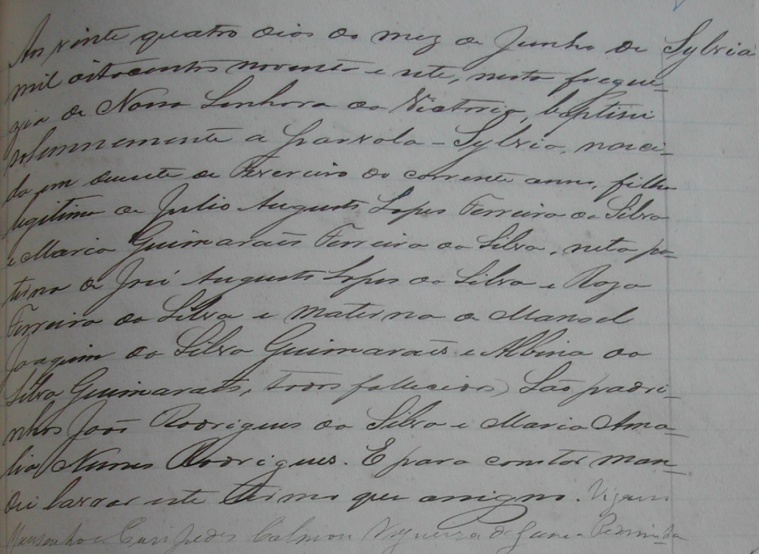 Aos vinte quatro dias do mez de Junho de Sylvia
mil oitocentos noventa e sete, nesta fregue-
zia de Nossa Senhora da Victoria, baptisei
solemnemente a parvola - Sylvia, nasci-
da em de Fevereiro do corrente anno, filha
legitima de Julio Augusto Lopes Ferreira da Silva
e Maria Guimarães Ferreira da Silva, neta pa-
terna de José Augusto Lopes da Silva e Roza
Ferreira da Silva e materna de Manoel
Joaquim da Silva Guimarães e Albina da
Silva Guimarães, todos fallecidos) São padri-
nhos João Rodrigues da Silva e Maria Ama-
lia Nunes Rodrigues. E para constar man-
dei lavrar este termo que assigno. Vigario
Calmon